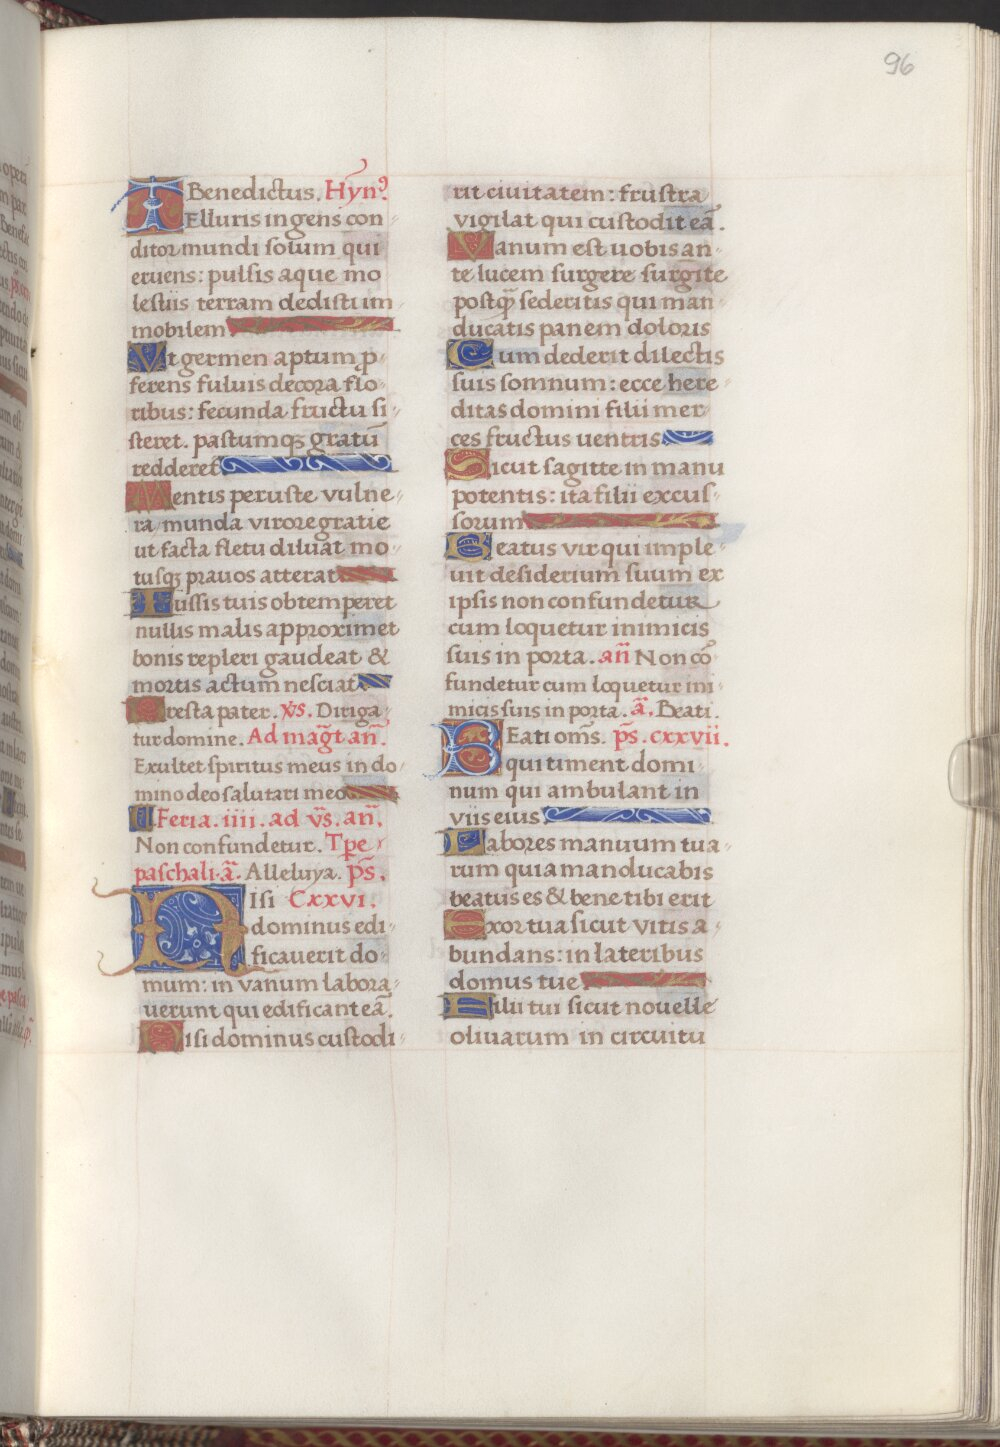 96
Benedictus. Hyn⁹.
TElluris ingens con
ditor mundi solum qui
eruens: pulsis aque mo
lestiis terram dedisti im
mobilem
Vt germen aptum ꝑ
ferens fuluis decora flo
ribus: fecunda fructu si
steret. pastumqꝫ gratū
redderet
Mentis peruste vulne
ra munda virore gratie
ut facta fletu diluat mo
tusqꝫ prauos atterat
Iussis tuis obtemperet
nullis malis approximet
bonis repleri gaudeat &
mortis actum nesciat
Presta pater. v̄s. Diriga
tur domine. Ad mag̅t an̄.
Exultet spiritus meus in do
mino deo salutari meo
Feria. iiii. ad v̄s. an̄.
Non confundetur. Tpe
paschali. ā. Alleluya. ps̄.
NIsi Cxxvi.
dominus edi
ficauerit do
mum: in vanum labora
uerunt qui edificant eā.
Nisi dominus custodi
rit ciuitatem: frustra
vigilat qui custodit eā.
Vanum est uobis an
te lucem surgere surgite
postꝙ̄ sederitis qui man
ducatis panem doloris
Cum dederit dilectis
suis somnum: ecce here
ditas domini filii mer
ces fructus uentris
Sicut sagitte in manu
potentis: ita filii excus
sorum
Beatus vir qui imple
uit desiderium suum ex
ipsis non confundetur
cum loquetur inimicis
suis in porta. an̄ Non cō
fundetur cum loquetur ini
micis suis in porta. ā. Beati.
BEati om̄s. ps̄. cxxvii.
qui timent domi
num qui ambulant in
viis eius
Labores manuum tua
rum quia manducabis
beatus es & bene tibi erit
Exor tua sicut vitis a
bundans: in lateribus
domus tue
Filii tui sicut nouelle
oliuarum in circuitu